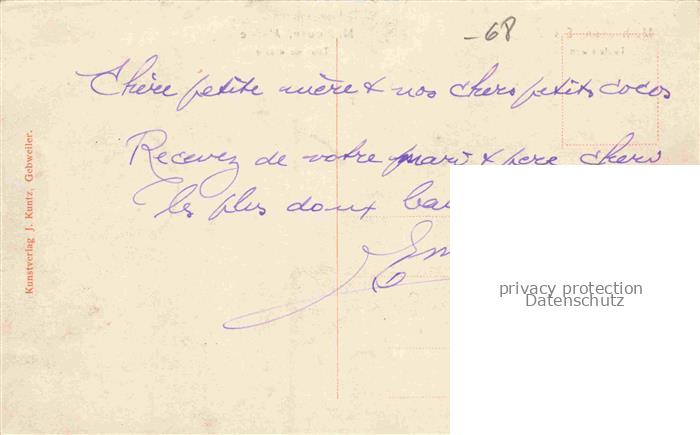 -68
Chère petite mère & nos chers petits cocos
Recevez de votre mari & père chéri
les plus doux
Kunstverlag J. Kuntz, Gebweiler.
privacy protection
Datenschutz